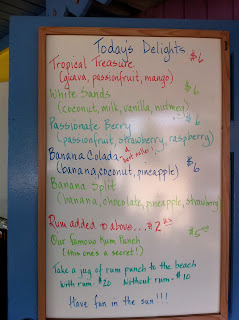 Today's Delights
Tropical Treasure $6
(guava, passionfruit, mango)
White Sands $6
(coconut, milk, vanilla, nutmeg)
Passionate Berry $6
(passionfruit, strawberry, raspberry)
Banana Colada - a best seller! $6
(banana, coconut, pineapple)
Banana Split
(banana, chocolate, pineapple, strawberry)
Rum added to above... $2
Our famous Rum Punch $5
(this ones a secret!)
Take a jug of rum punch to the beach
with rum $20 Without rum $10
Have fun in the sun!!!